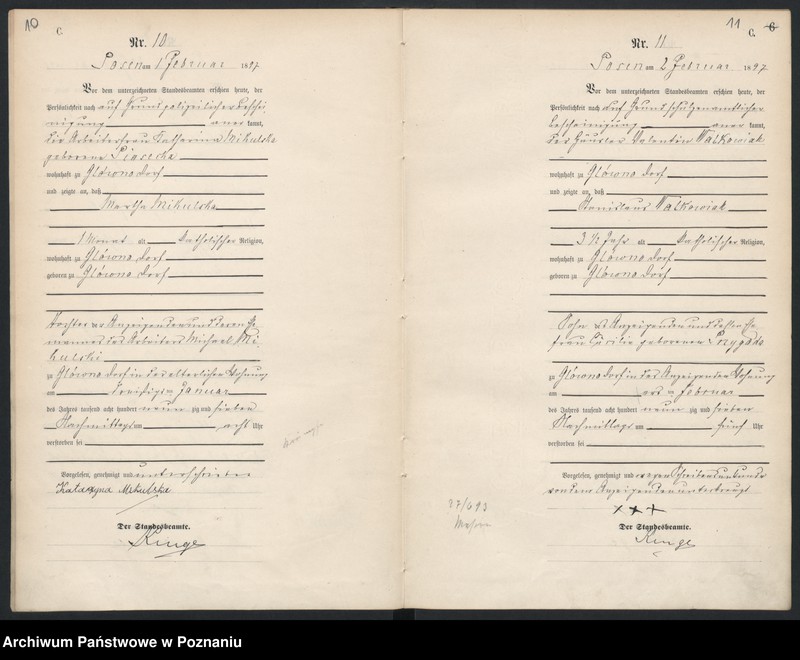 10
C.
Nr. 10
Posen am 1 Februar 1897
Vor dem unterzeichneten Standesbeamten erschien heute, der
Persönlichkeit nach auf Grund polizeilicher Beschei-
nigung anerkannt,
die Arbeiterfrau Katharina Mikulska
geborene Piasecka
wohnhaft zu Glówno Dorf
und zeigte an, daß
Martha Mikulska
1 Monat alt katholischer Religion,
wohnhaft zu Glówno Dorf
geboren zu Glówno Dorf
Tochter der Anzeigenden und deren Ehe-
mannes des Arbeiters Michael Mi-
kulski
zu Glówno Dorf in der elterlichen Wohnung
am dreißigsten Januar
des Jahres tausend acht hundert neunzig und sieben
Nachmittags um acht Uhr
verstorben sei
Vorgelesen, genehmigt und unterschrieben
Katarzyna Mikulska
Der Standesbeamte.
Kluge
11
C. 6
Nr. 11
Posen am 2 Februar 1897
Vor dem unterzeichneten Standesbeamten erschien heute, der
Persönlichkeit nach auf Grund schulzenamtlicher
Bescheinigung anerkannt,
der Häusler Valentin Walkowiak
wohnhaft zu Glówno Dorf
und zeigte an, daß
Stanislaus Walkowiak
3 1/2 Jahr alt katholischer Religion,
wohnhaft zu Glówno Dorf
geboren zu Glówno Dorf
Sohn des Anzeigenden und dessen Ehe-
frau Cäcilie geborenen Przygoda
zu Glówno Dorf in des Anzeigenden Wohnung
am ersten Februar
des Jahres tausend acht hundert neunzig und sieben
Nachmittags um fünf Uhr
verstorben sei
Vorgelesen, genehmigt und wegen Schreibensunkunde
von dem Anzeigenden unterkreuzt
+++
Der Standesbeamte.
Kluge
27/693
Archiwum Państwowe w Poznaniu